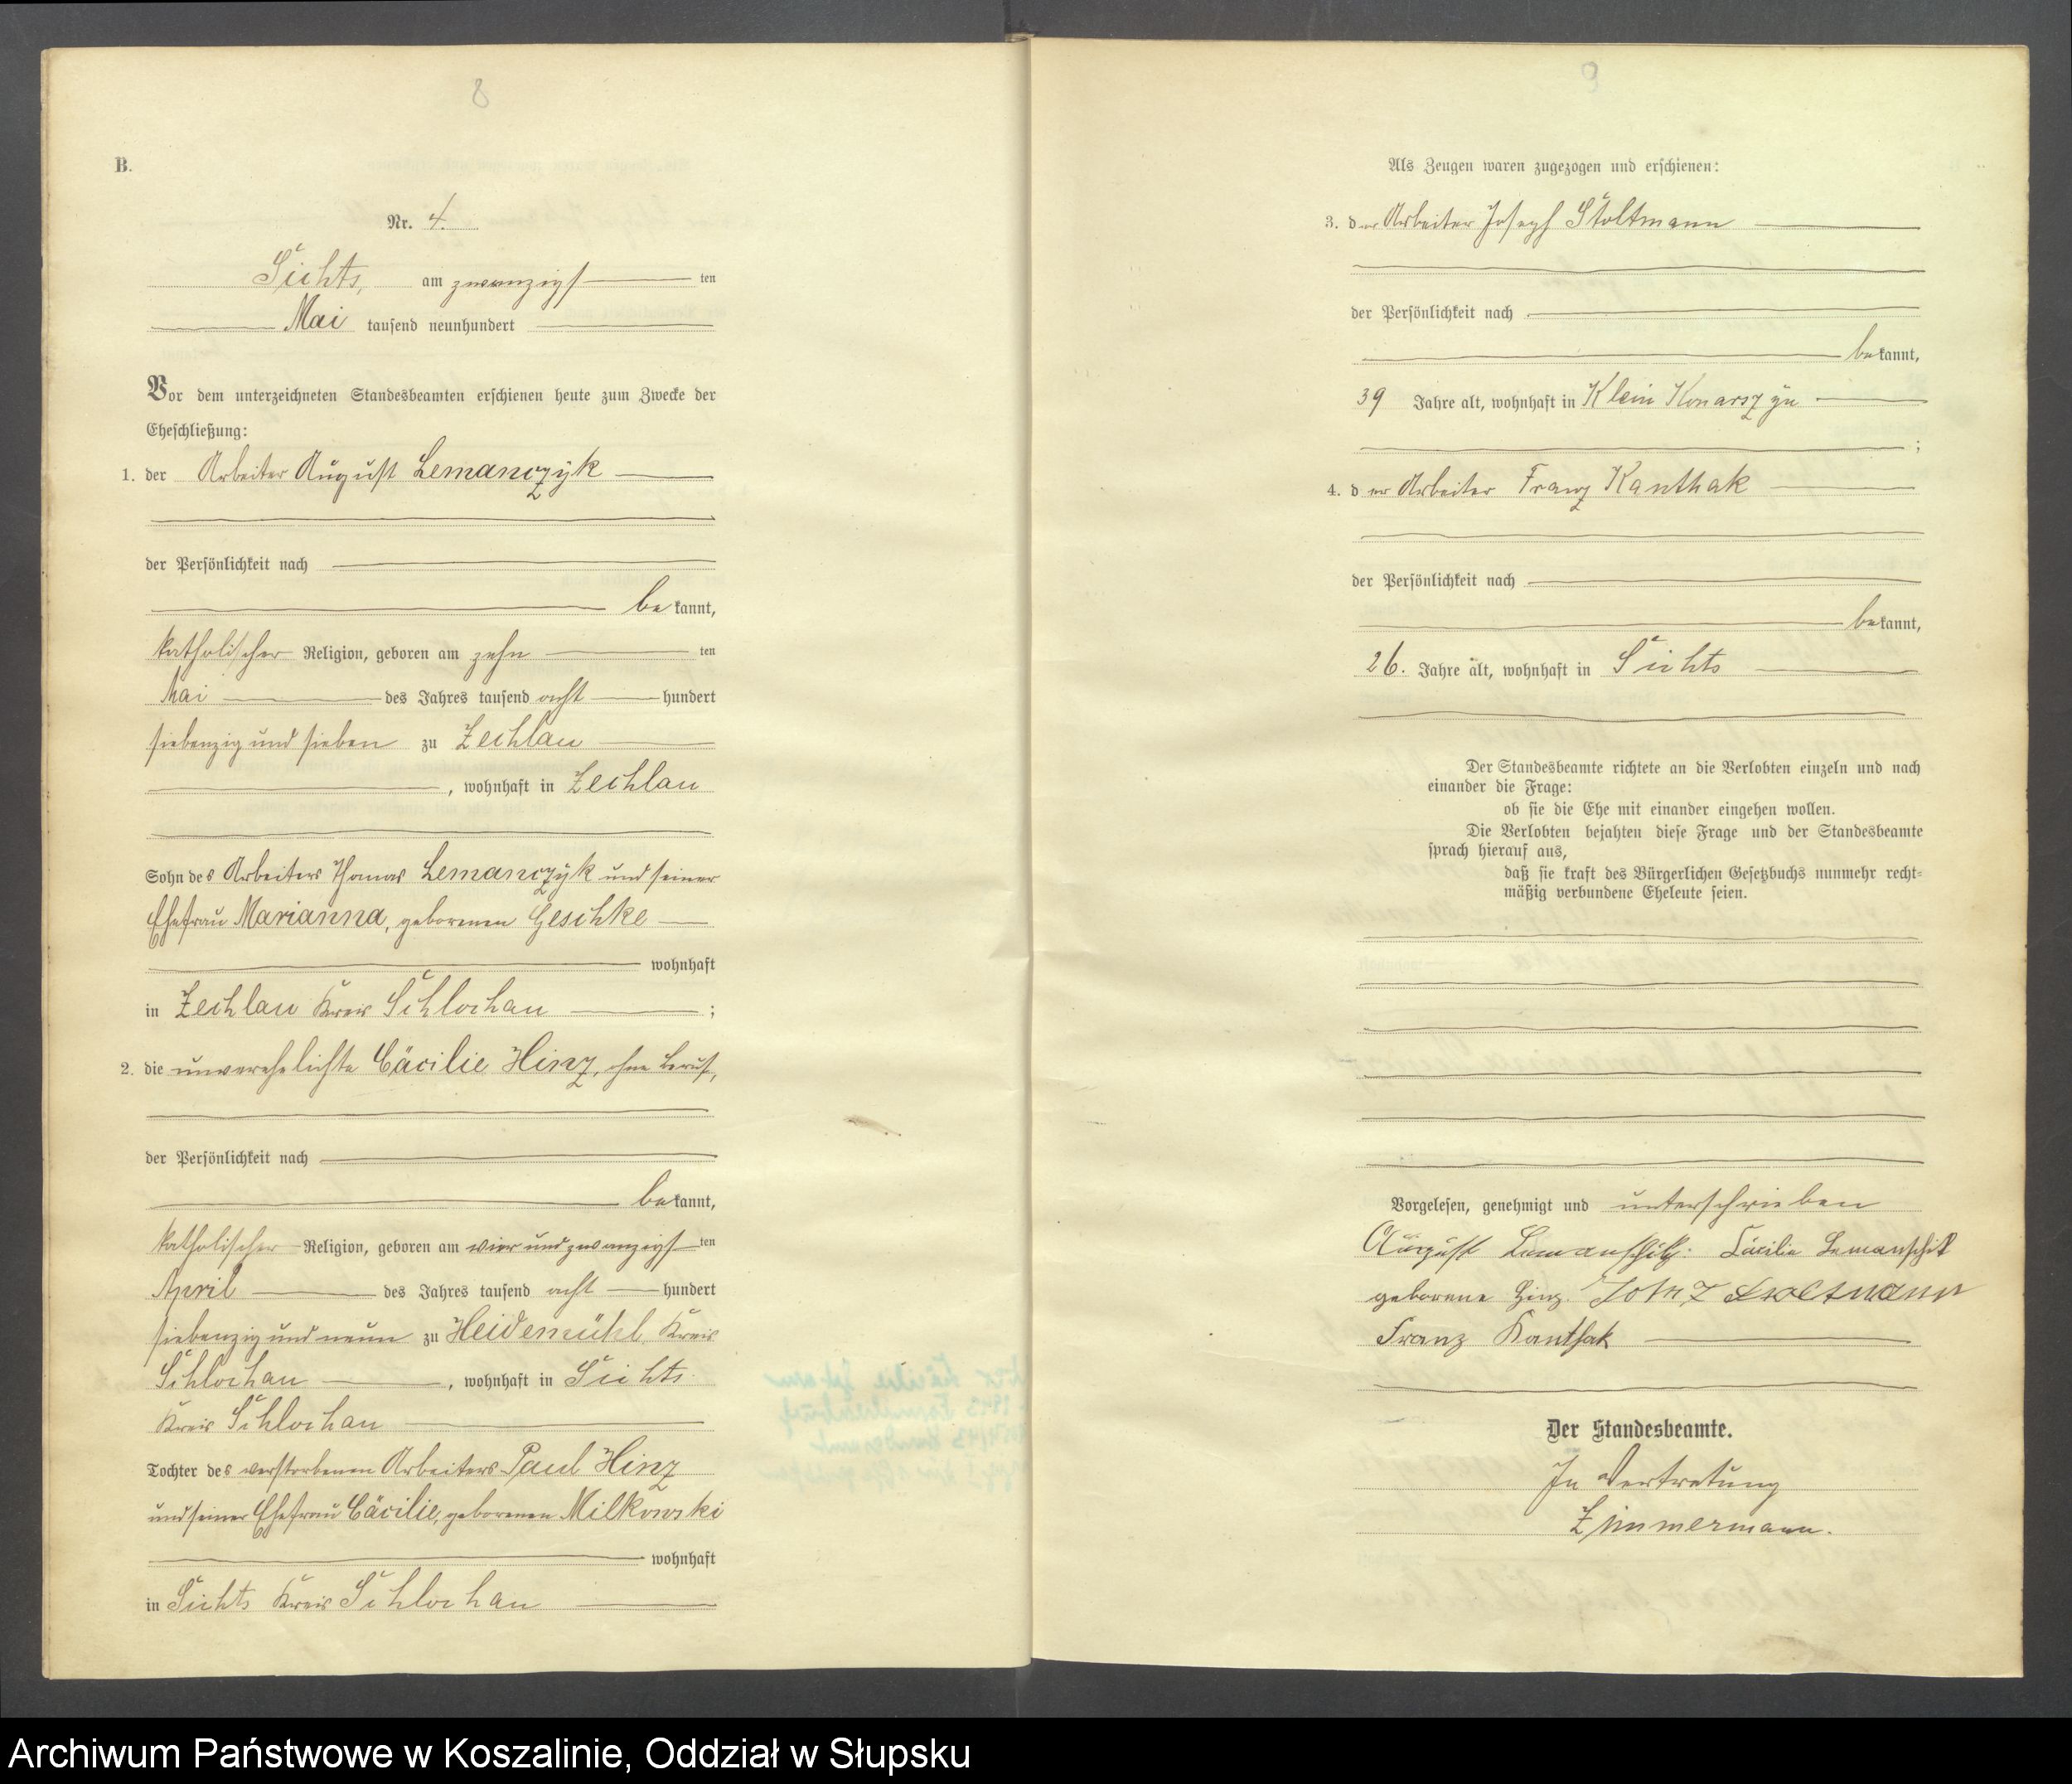 8
B.
Nr. 4.
Sichts, am zwanzigsten
Mai tausend neunhundert
Vor dem unterzeichneten Standesbeamten erschienen heute zum Zwecke der
Eheschließung:
1. der Arbeiter August Lemanczyk
der Persönlichkeit nach
bekannt,
katholischer Religion, geboren am zehnten
Mai des Jahres tausend achthundert
siebenzig und sieben zu Zechlau
, wohnhaft in Zechlau
Sohn des Arbeiters Thomas Lemanczyk und seiner
Ehefrau Marianna, geborenen Geschke
wohnhaft
in Zechlau Kreis Schlochau ;
2. die unverehelichte Cäcilie Hinz, ohne Beruf,
der Persönlichkeit nach
bekannt,
katholischer Religion, geboren am vier und zwanzigsten
April des Jahres tausend achthundert
siebenzig und neun zu Heidemühl Kreis
Schlochau , wohnhaft in Sichts
Kreis Schlochau
Tochter des verstorbenen Arbeiters Paul Hinz
und seiner Ehefrau Cäcilie, geborenen Milkowski
wohnhaft
in Sichts Kreis Schlochau
9
Als Zeugen waren zugezogen und erschienen:
3. der Arbeiter Joseph Stoltmann
der Persönlichkeit nach
bekannt,
39 Jahre alt, wohnhaft in Klein Konarszyn
;
4. der Arbeiter Franz Kanthak
der Persönlichkeit nach
bekannt,
26. Jahre alt, wohnhaft in Sichts
Der Standesbeamte richtete an die Verlobten einzeln und nach
einander die Frage:
ob sie die Ehe mit einander eingehen wollen.
Die Verlobten bejahten diese Frage und der Standesbeamte
sprach hierauf aus,
daß sie kraft des Bürgerlichen Gesetzbuchs nunmehr recht-
mäßig verbundene Eheleute seien.
Vorgelesen, genehmigt und unterschrieben
August Lemanschik. Cäcilie Lemanschik
geborene Hinz. Stoltmann
Franz Kanthak
Der Standesbeamte.
In Vertretung
Zimmermann.
Archiwum Państwowe w Koszalinie, Oddział w Słupsku